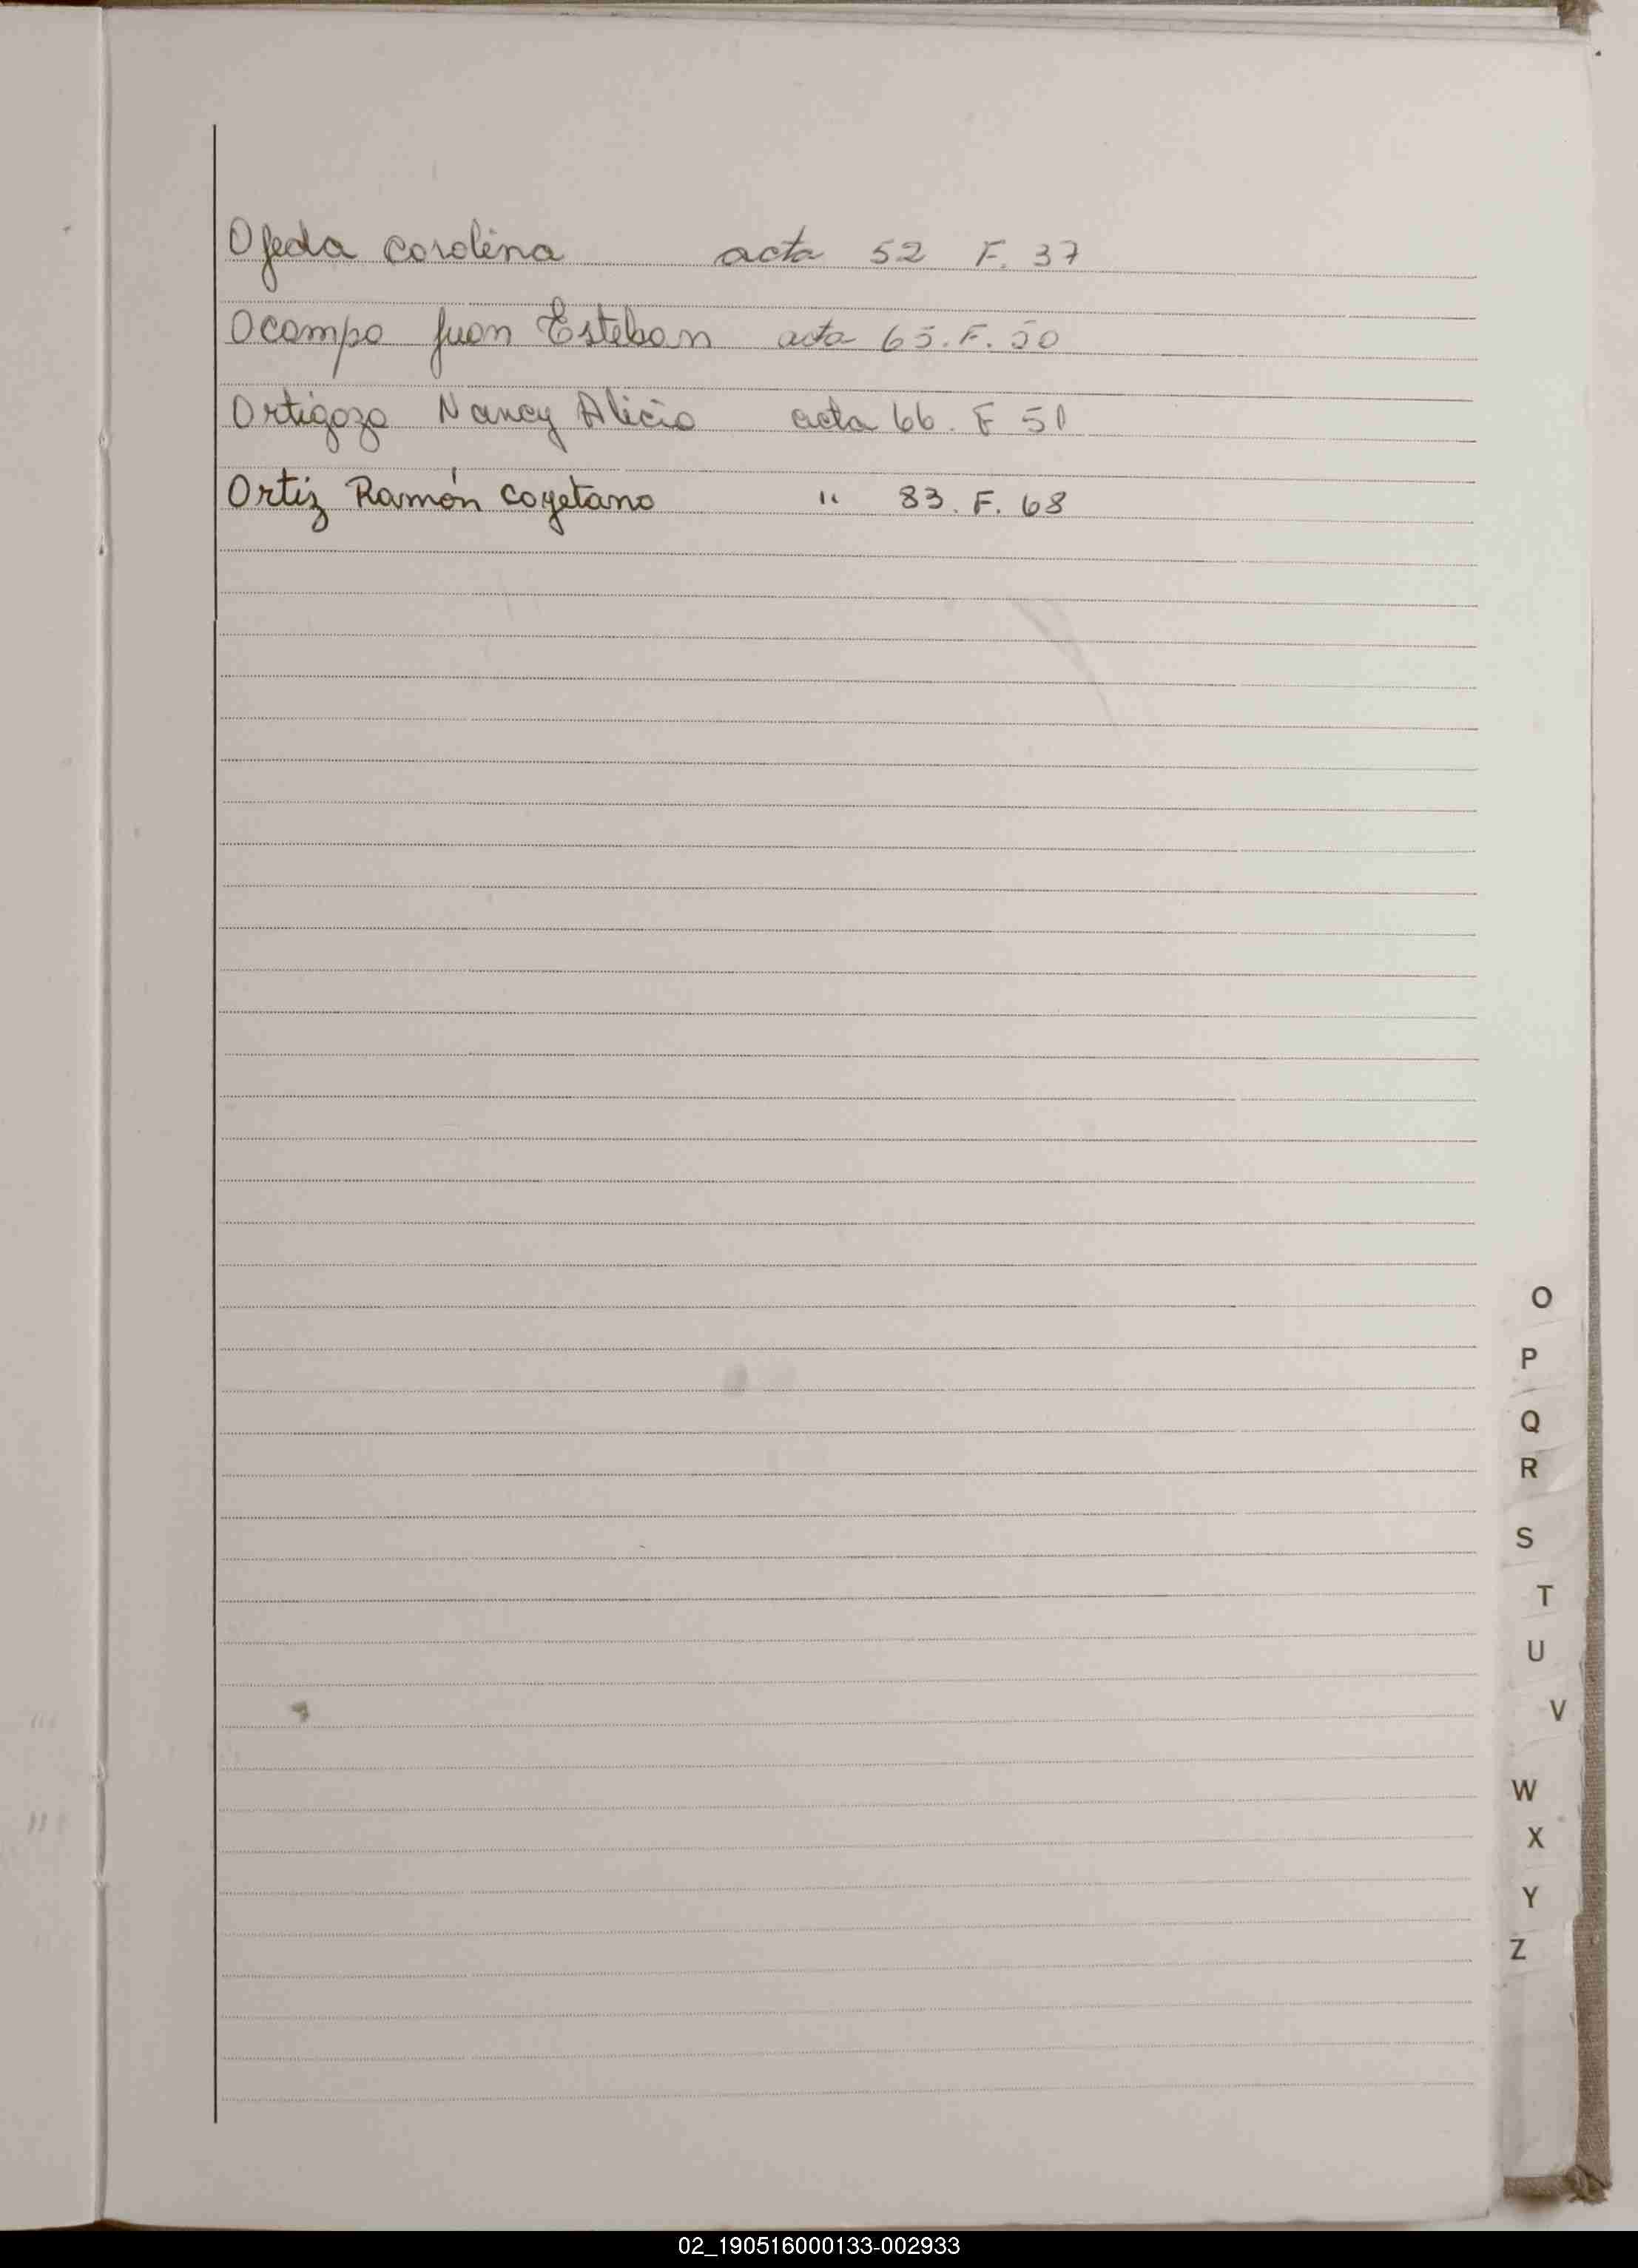 Ojeda Carolina acta 52 F. 37
Ocampo Juan Esteban acta 65. F. 50
Ortigoza Nancy Alicia acta 66. F 51
Ortiz Ramón Cayetano " 83. F. 68
O
P
Q
R
S
T
U
V
W
X
Y
Z
02_190516000133-002933